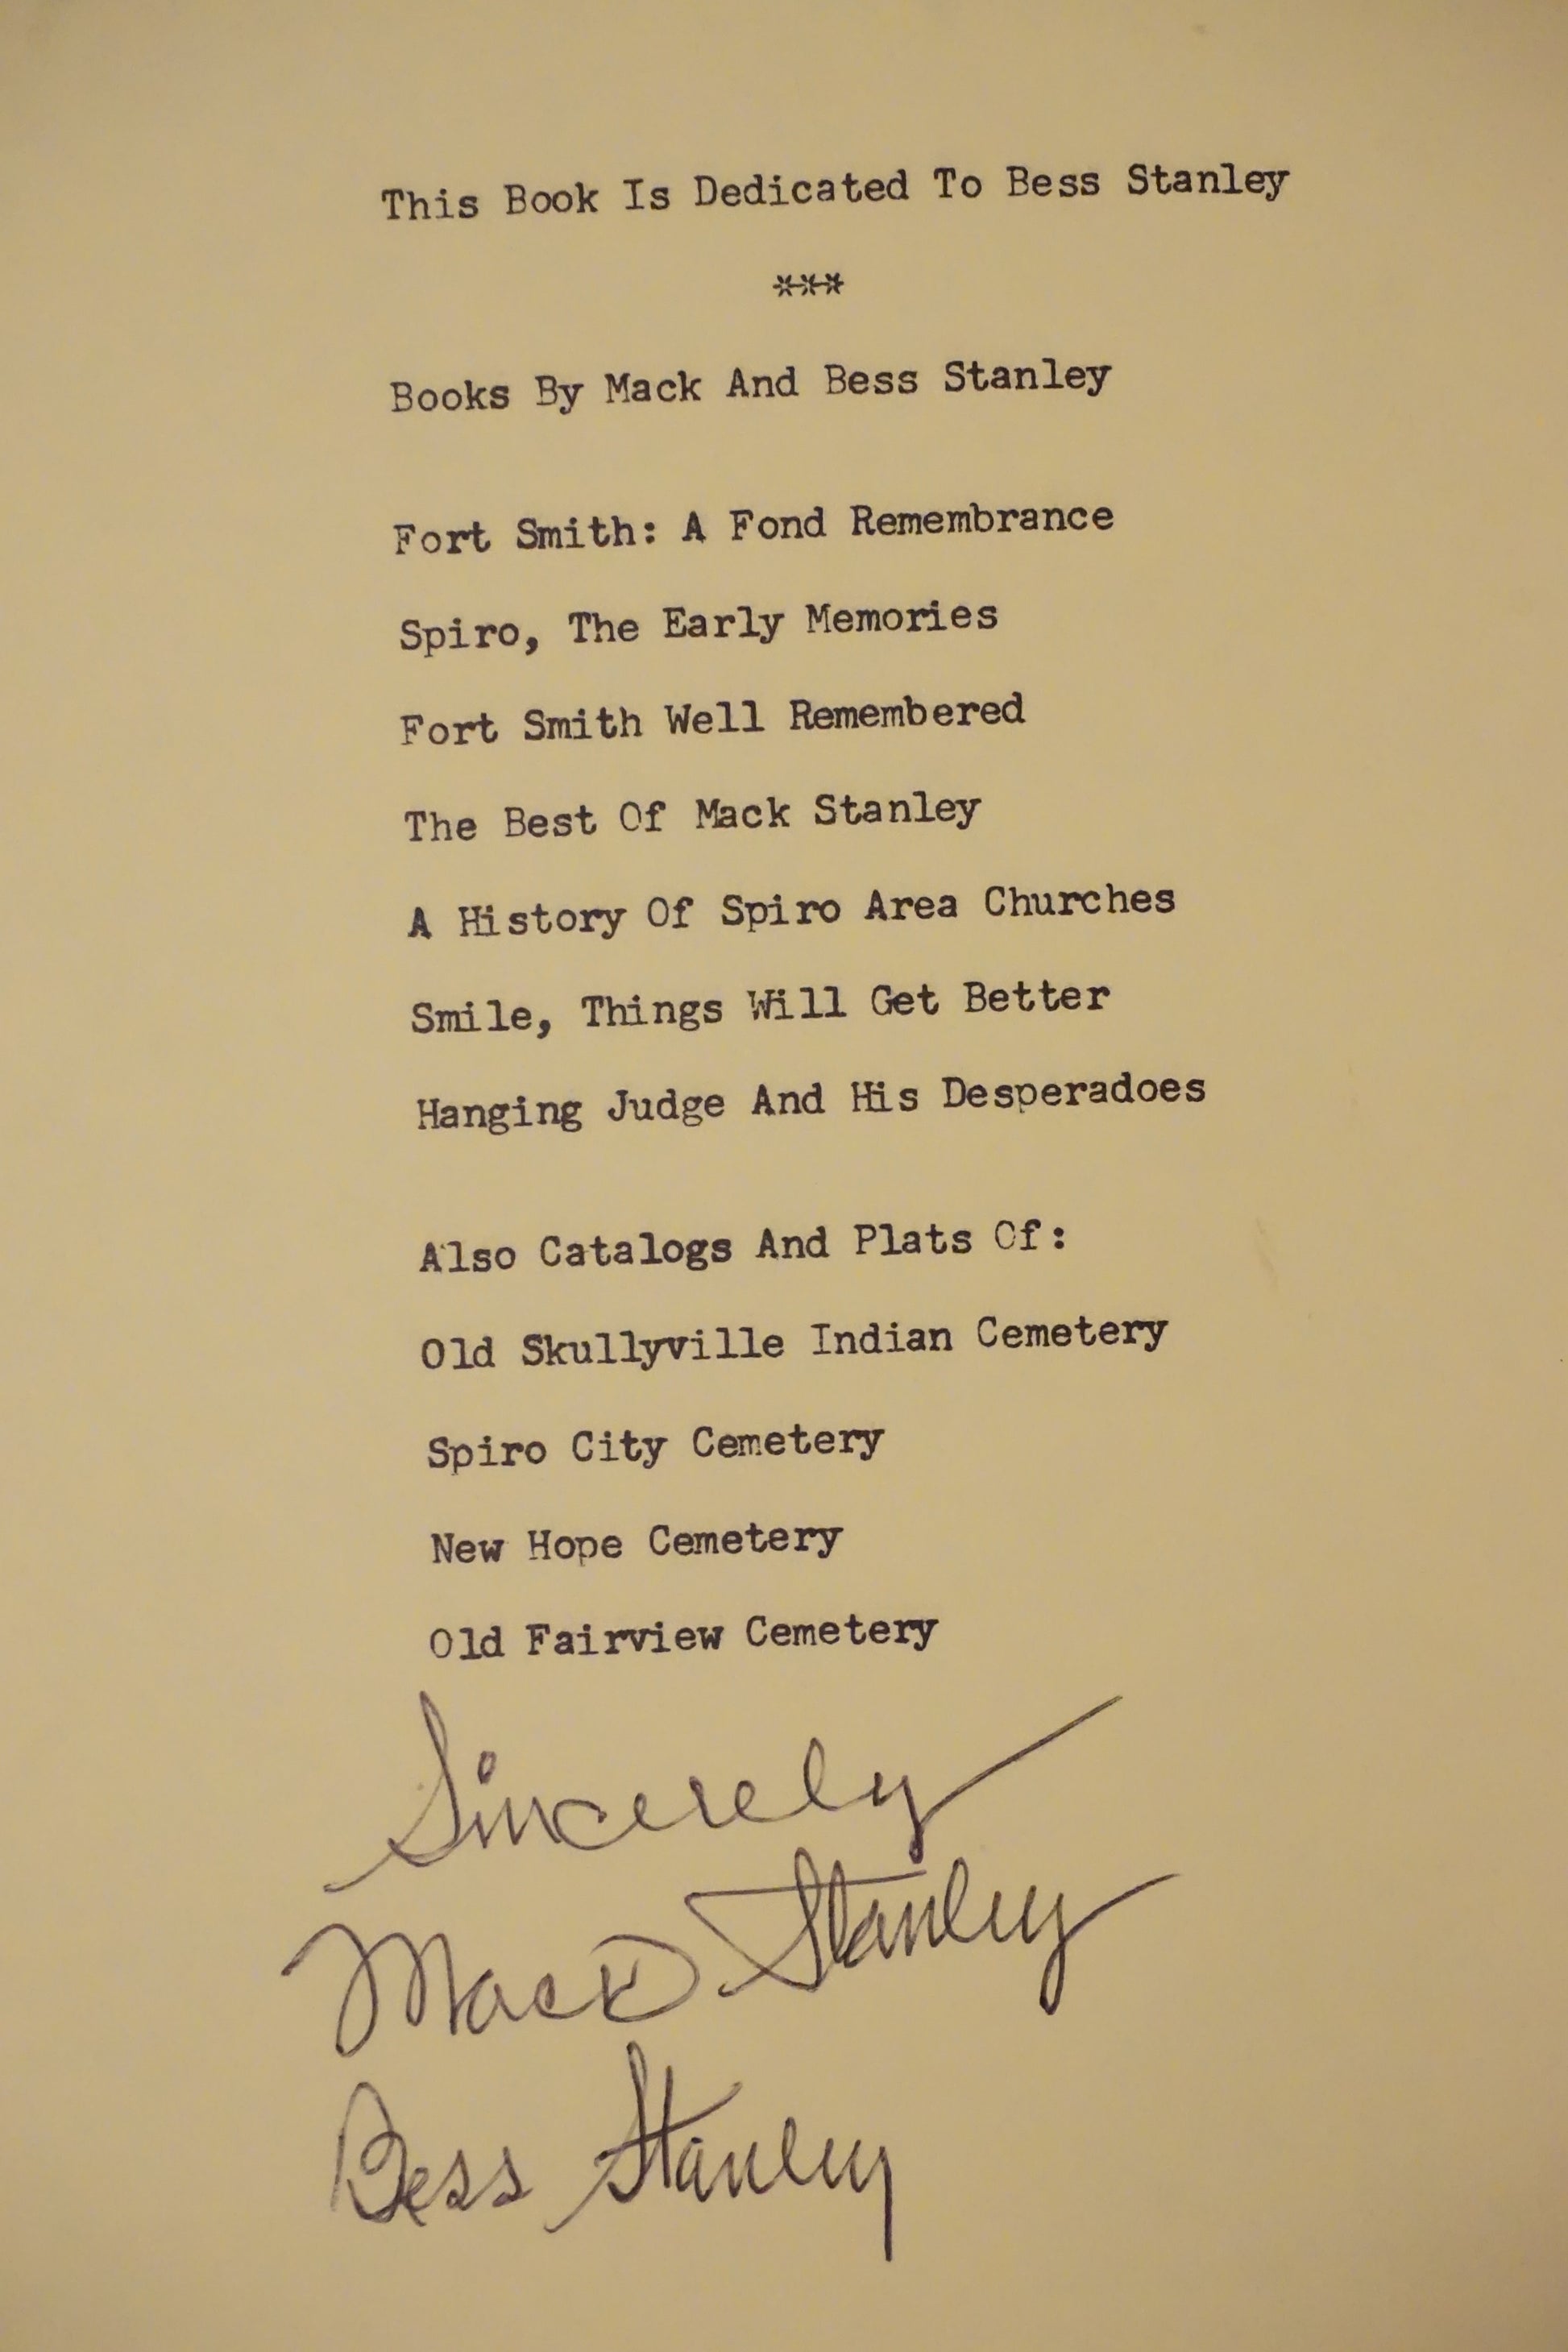 This Book Is Dedicated To Bess Stanley
***
Books By Mack And Bess Stanley
Fort Smith: A Fond Remembrance
Spiro, The Early Memories
Fort Smith Well Remembered
The Best Of Mack Stanley
A History Of Spiro Area Churches
Smile, Things Will Get Better
Hanging Judge And His Desperadoes
Also Catalogs And Plats Of:
Old Skullyville Indian Cemetery
Spiro City Cemetery
New Hope Cemetery
Old Fairview Cemetery
Sincerely
Mack Stanley
Bess Stanley